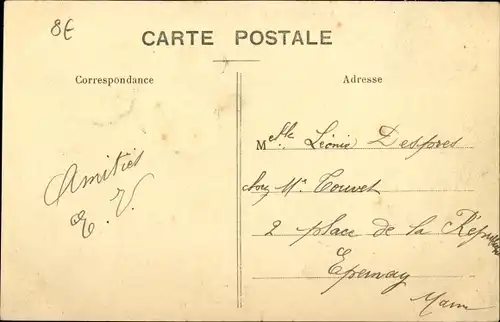 8€
CARTE POSTALE
Correspondance
Adresse
Amitiés
E. V.
Melle Léonie Despres
chez Mr Touvet
2 place de la République
Epernay
Marne